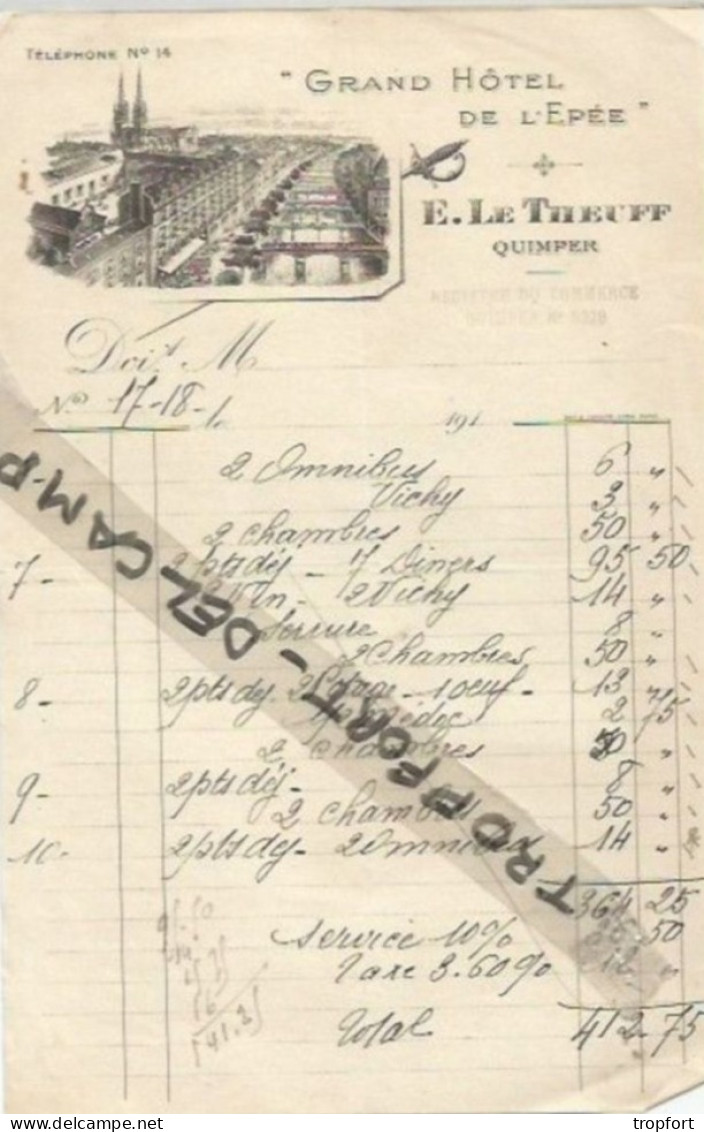 TÉLÉPHONE Nº 14
"GRAND HÔTEL
DE L'EPÉE"
E. LE THEUFF
QUIMPER
REGISTRE DU COMMERCE
QUIMPER Nº
Doit M
Nº 17-18- 191
2 Omnibus 6 "
Vichy 3 "
2 chambres 50 "
7- 2 pts déj - 7 Diners 95 50
Vin - 2 Vichy 14 "
Serrure 8 "
2 Chambres 50 "
8- 2 pts dej - 1 oeuf - 13 "
Médoc 2 75
2 chambres 50 "
9- 2 pts déj - 8 "
2 chambres 50 "
10- 2 pts dej - 2 Omnibus 14 "
364 25
Service 10% 50
Taxe 3.60% 12 "
Total 412 75
TROPFORT - DELCAMP
tropfort